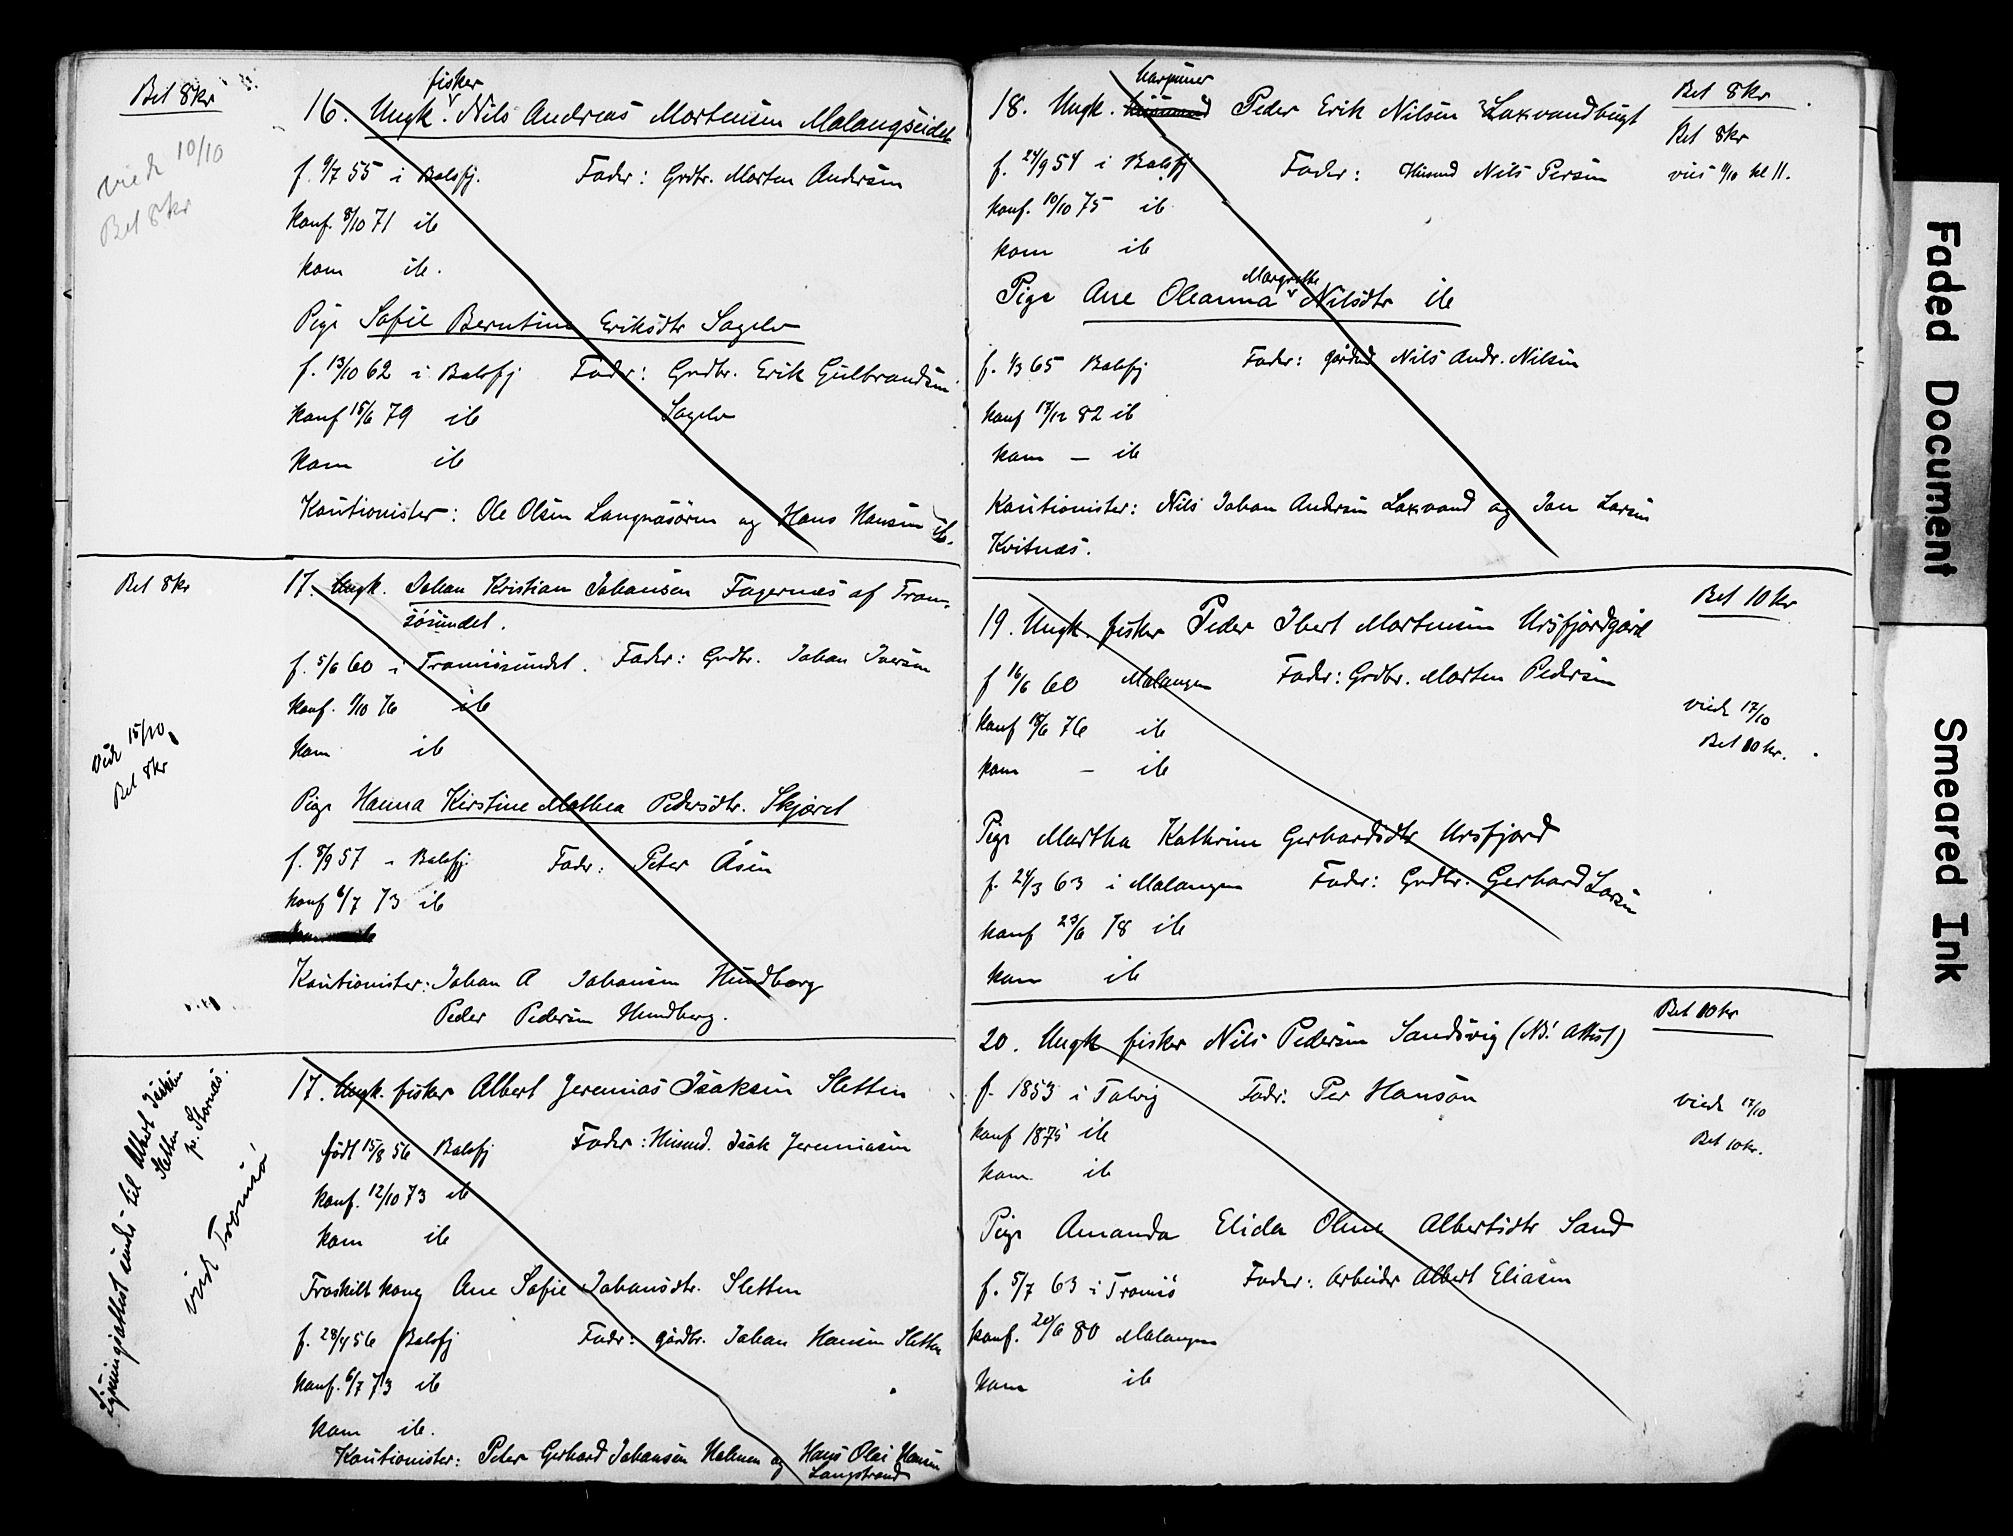 Bet 8kr
viede 10/10
Bet 8 kr
fisker
16. Ungk. Nils Andreas Mortensen Malangseidet
f. 9/7 55 i Balsfj. Fader: Grdbr. Morten Andersen
konf. 8/10 71 ib
kom ib.
Pige Sofie Berntine Eriksdtr Sagelv
f. 13/10 62 i Balsfj Fader: Grdbr. Erik Gulbrandsen
Sagelv
konf 15/6 79 ib
kom ib
Kautionister: Ole Olsen Langnæsøren og Hans Hansen ib.
Bet 8kr
17. Ungk. Johan Kristian Johansen Fagernæs af Trom-
søsundet.
f. 5/6 60 i Tromsøsundet. Fader: Grdbr. Johan Iversen
konf. 1/10 76 ib
kom ib
Vide 15/10
Bet 8kr
Pige Hanna Kirstine Mathea Pedersdtr. Skjæret
f. 8/9 57 - Balsfj Fader: Peter Åsen
konf 6/7 73 ib
Kautionister: Johan A Johansen Hundberg
Peder Pedersen Hundberg.
17. Ungk. fisker Albert Jeremias Isaksen Sletten
født 15/8 56 Balsfj Fader: Husmd. Isak Jeremiasen
konf. 12/10 73 ib
kom ib
Fraskilt kone Ane Sofie Johansdtr. Sletten
f. 28/4 56 Balsfj Fader: gårdbr. Johan Hansen Sletten
konf. 6/7 73 ib
kom ib.
Kautionister: Peter Gerhard Johansen Holmen og Hans Olai Hansen
Langstrand
Lysningsattest sendes til Albert Isaksen
Sletten
p. Stornæs.
viet Tromsø
harpuner
18. Ungk. husmand Peder Erik Nilsen Laxvandbugt
Bet 8kr
Bet 8kr
f. 24/9 54 i Balsfj Fader: Husmd Nils Persen
vies 9/10 kl 11.
konf. 10/10 75 ib
kom ib
Margrethe
Pige Ane Oleanna Nilsdtr ib
f. 1/3 65 Balsfj Fader: gårdmd Nils Andr. Nilsen
konf 17/12 82 ib
kom — ib
Kautionister: Nils Johan Andersen Laxvand og Jon Larsen
Kvitnæs.
Bet 10 kr
19. Ungk. fisker Peder Ibert Mortensen Ursfjordgård
f 16/6 60 Malangen Fader: Grdbr. Morten Pedersen
viede 17/10
Bet 10 kr.
konf 18/6 76 ib
kom - ib
Pige Martha Kathrine Gerhardsdtr Ursfjord
f. 24/3 63 i Malangen Fader: Grdbr. Gerhard Larsen
konf 23/6 78 ib
kom ib
Bet 10 kr
20. Ungk fisker Nils Pedersen Sandsvig (NB! Attest)
f. 1853 i Talvig Fader: Per Hanson
viede 17/10
Bet 10 kr.
konf 1875 ib
kom ib
Pige Amanda Elida Oline Albertsdtr Sand
f. 5/7 63 i Tromsø Fader: Arbeider Albert Eliasen
konf. 20/6 80 Malangen
kom ib
Faded Document
Smeared Ink